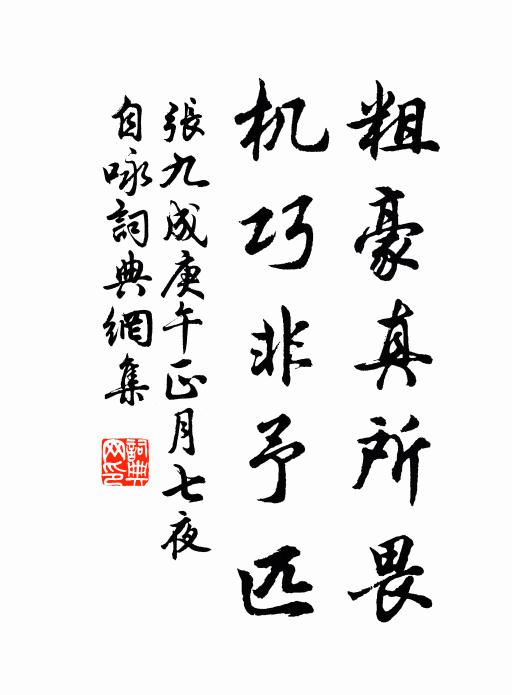 粗豪真所畏
机巧非予匹
張九成庚午正月七夜
自咏詞典網集
詞典
网印